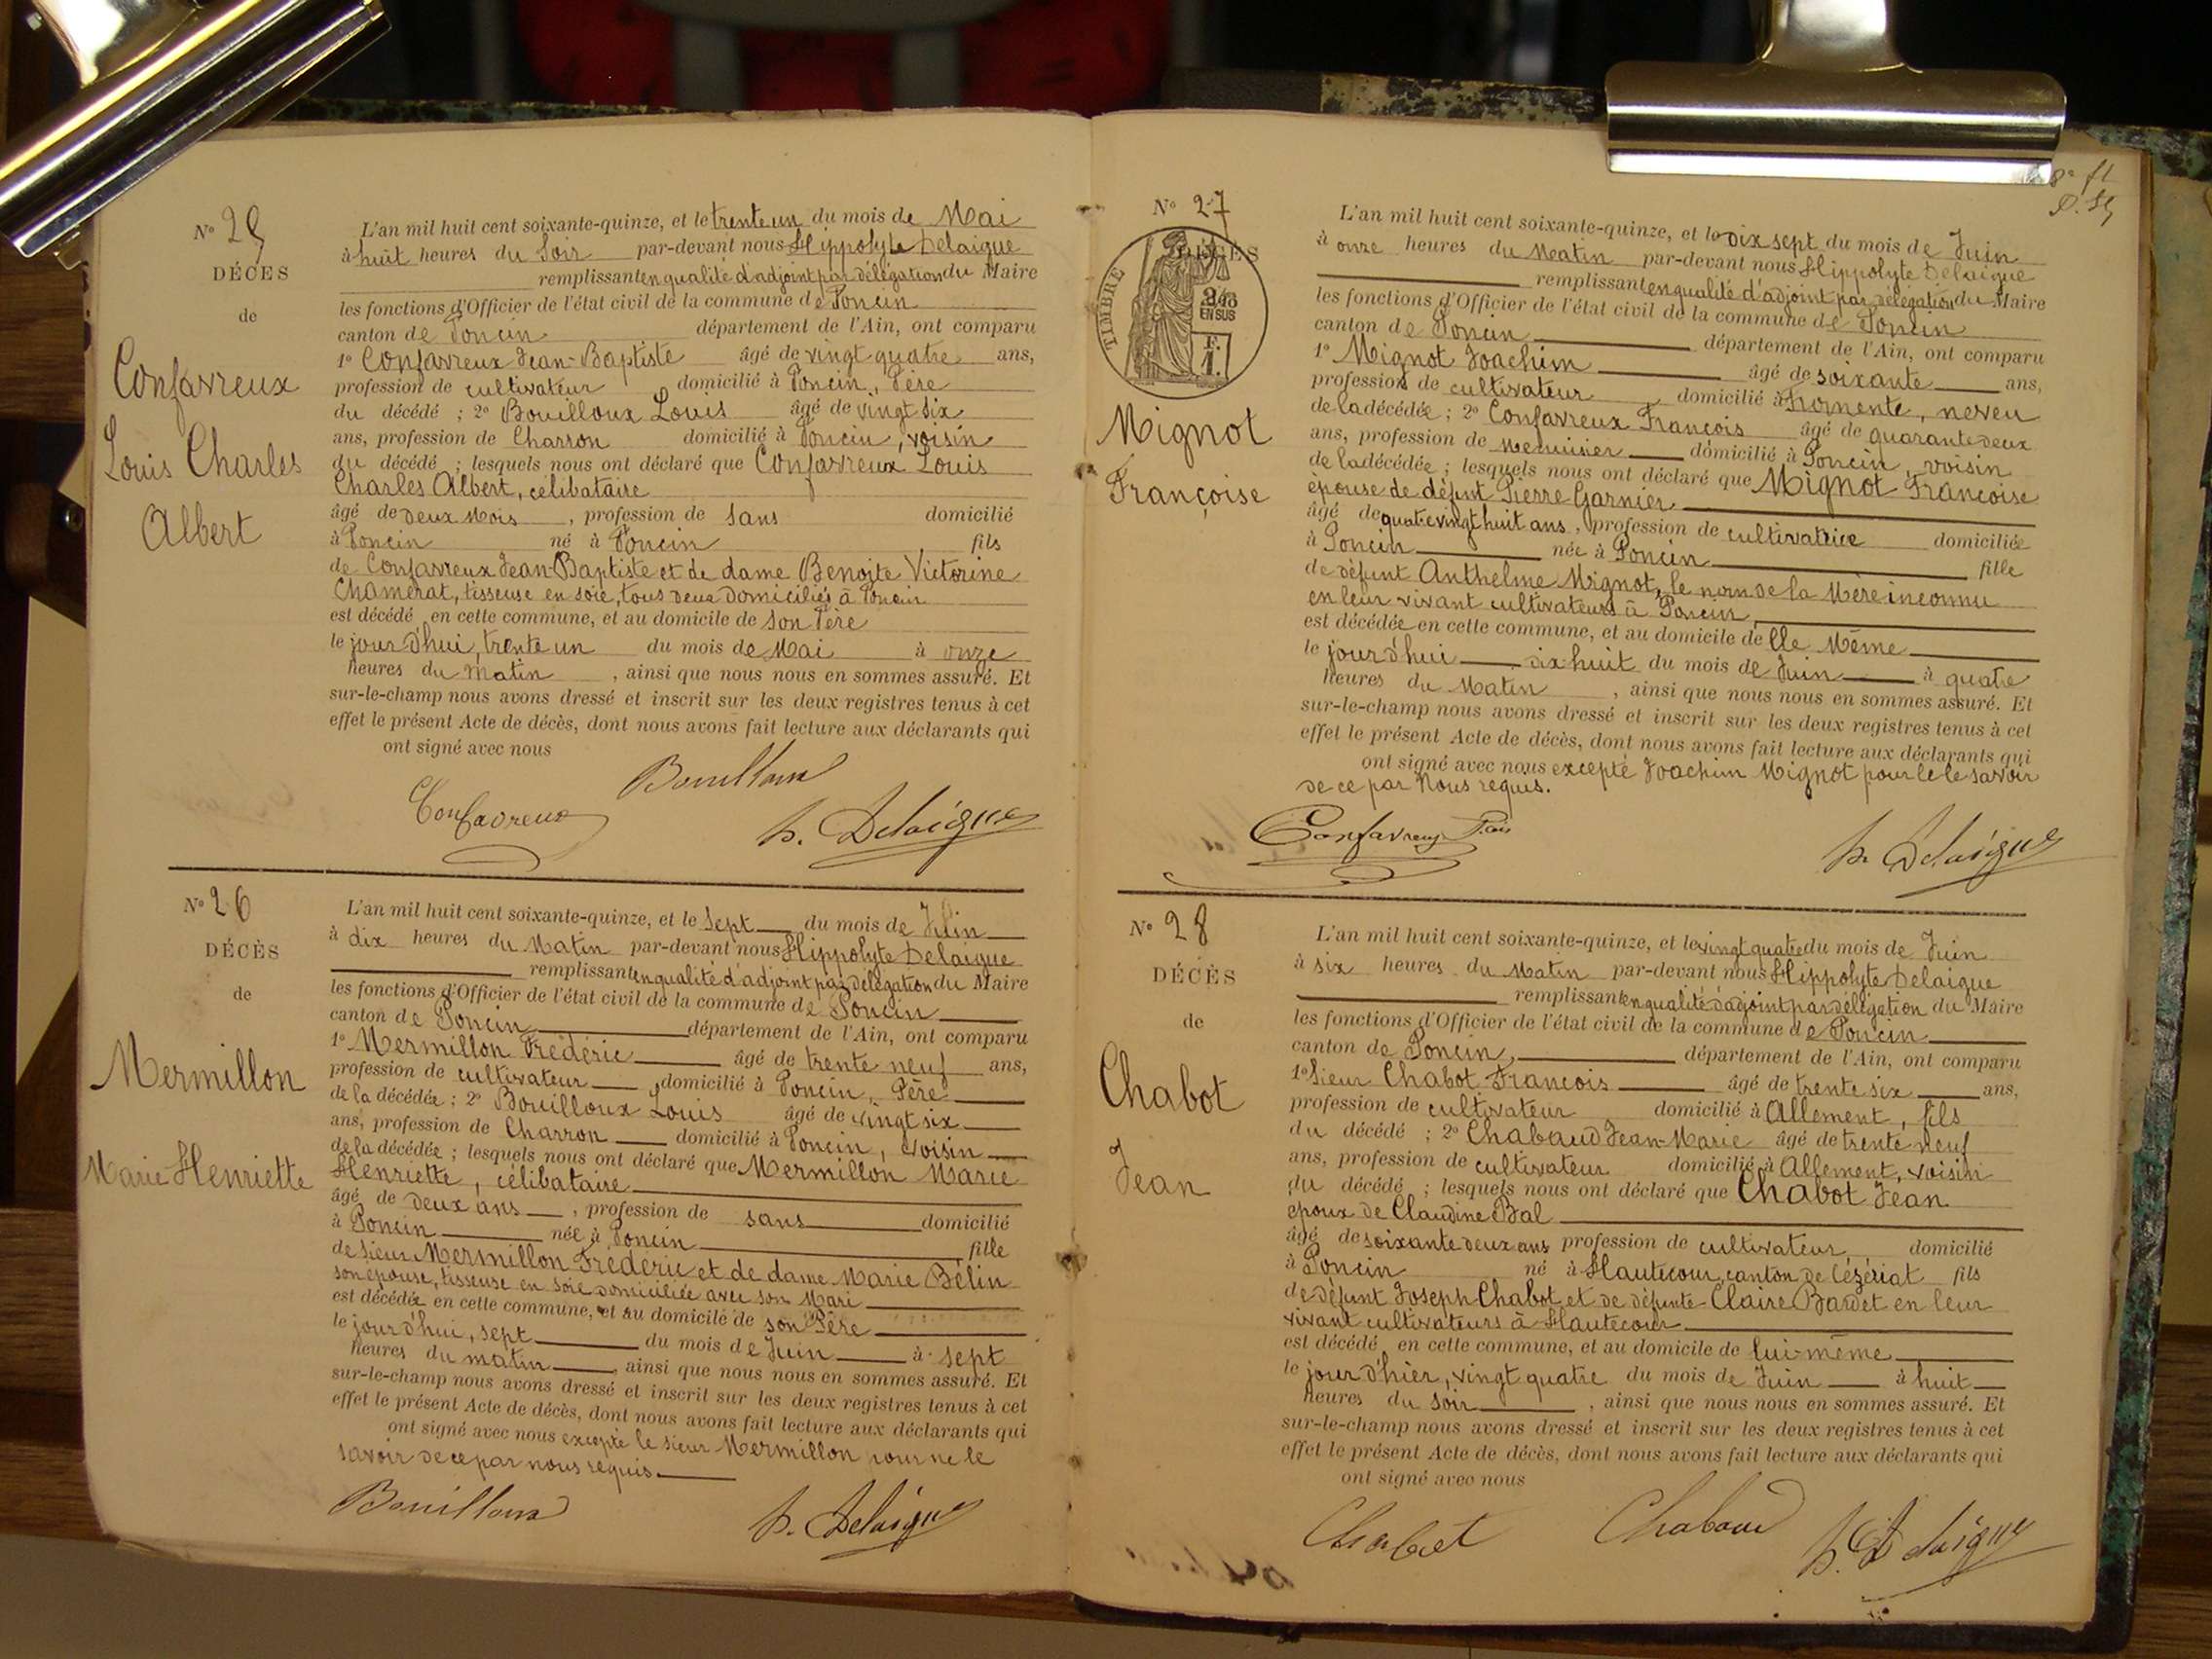 N° 25
DÉCÈS
de
Confavreux
Louis Charles
Albert
L'an mil huit cent soixante-quinze, et le trente un du mois de Mai
à huit heures du Soir par-devant nous Hippolyte Delaigue
remplissant en qualité d'adjoint par délégation du Maire
les fonctions d'Officier de l'état civil de la commune de Poncin
canton de Poncin département de l'Ain, ont comparu
1° Confavreux Jean-Baptiste âgé de vingt quatre ans,
profession de cultivateur domicilié à Poncin, Père
du décédé ; 2° Bouilloux Louis âgé de vingt six
ans, profession de Charron domicilié à Poncin, voisin
du décédé ; lesquels nous ont déclaré que Confavreux Louis
Charles Albert, célibataire
âgé de deux Mois, profession de sans domicilié
à Poncin né à Poncin fils
de Confavreux Jean-Baptiste et de dame Benoite Victorine
Chamerat, tisseuse en soie, tous deux domiciliés à Poncin
est décédé en cette commune, et au domicile de son Père
le jour d'hui, trente un du mois de Mai à onze
heures du matin, ainsi que nous nous en sommes assuré. Et
sur-le-champ nous avons dressé et inscrit sur les deux registres tenus à cet
effet le présent Acte de décès, dont nous avons fait lecture aux déclarants qui
ont signé avec nous
Bouilloux
Confavreux
h. Delaigue
N° 26
DÉCÈS
de
Mermillon
Marie-Henriette
L'an mil huit cent soixante-quinze, et le sept du mois de Juin
à dix heures du Matin par-devant nous Hippolyte Delaigue
remplissant en qualité d'adjoint par délégation du Maire
les fonctions d'Officier de l'état civil de la commune de Poncin
canton de Poncin département de l'Ain, ont comparu
1° Mermillon Frédéric âgé de trente neuf ans,
profession de cultivateur, domicilié à Poncin, Père
de la décédée ; 2° Bouilloux Louis âgé de vingt six
ans, profession de Charron domicilié à Poncin, voisin
de la décédée ; lesquels nous ont déclaré que Mermillon Marie
Henriette, célibataire
âgé de deux ans, profession de sans domicilié
à Poncin née à Poncin fille
de sieur Mermillon Frédéric et de dame Marie Bélin
son épouse, tisseuse en soie domiciliée avec son Mari
est décédée en cette commune, et au domicile de son Père
le jour d'hui, sept du mois de Juin à sept
heures du matin, ainsi que nous nous en sommes assuré. Et
sur-le-champ nous avons dressé et inscrit sur les deux registres tenus à cet
effet le présent Acte de décès, dont nous avons fait lecture aux déclarants qui
ont signé avec nous excepté le sieur Mermillon pour ne le
savoir de ce par nous requis.
Bouilloux
h. Delaigue
N° 27
DÉCÈS
TIMBRE
2/10
EN SUS
F.
1.
Mignot
Françoise
L'an mil huit cent soixante-quinze, et le dix sept du mois de Juin
à onze heures du Matin par-devant nous Hippolyte Delaigue
remplissant en qualité d'adjoint par délégation du Maire
les fonctions d'Officier de l'état civil de la commune de Poncin
canton de Poncin département de l'Ain, ont comparu
1° Mignot Joachim âgé de soixante ans,
profession de cultivateur, domicilié à Fromente, neveu
de la décédée ; 2° Confavreux François âgé de quarante deux
ans, profession de menuisier domicilié à Poncin, voisin
de la décédée ; lesquels nous ont déclaré que Mignot Françoise
épouse de défunt Pierre Garnier
âgé de quatrevingt huit ans, profession de cultivatrice domiciliée
à Poncin née à Poncin fille
de défunt Anthelme Mignot, le nom de la Mère inconnu
en leur vivant cultivateurs à Poncin,
est décédée en cette commune, et au domicile de Elle Même
le jour d'hui dix huit du mois de Juin à quatre
heures du Matin, ainsi que nous nous en sommes assuré. Et
sur-le-champ nous avons dressé et inscrit sur les deux registres tenus à cet
effet le présent Acte de décès, dont nous avons fait lecture aux déclarants qui
ont signé avec nous excepté Joachim Mignot pour le le savoir
de ce par Nous requis.
Confavreux
h. Delaigue
N° 28
DÉCÈS
de
Chabot
Jean
L'an mil huit cent soixante-quinze, et le vingt quatre du mois de Juin
à six heures du Matin par-devant nous Hippolyte Delaigue
remplissant en qualité d'adjoint par délégation du Maire
les fonctions d'Officier de l'état civil de la commune de Poncin
canton de Poncin, département de l'Ain, ont comparu
1° Sieur Chabot François âgé de trente six ans,
profession de cultivateur domicilié à Allement, fils
du décédé ; 2° Chabaud Jean-Marie âgé de trente neuf
ans, profession de cultivateur domicilié à Allement, voisin
du décédé ; lesquels nous ont déclaré que Chabot Jean
époux de Claudine Bal
âgé de soixante deux ans profession de cultivateur, domicilié
à Poncin né à Hautecour, canton de Cézériat fils
de défunt Joseph Chabot et de défunte Claire Bardet en leur
vivant cultivateurs à Hautecour
est décédé en cette commune, et au domicile de lui-même
le jour d'hier, vingt quatre du mois de Juin à huit
heures du soir, ainsi que nous nous en sommes assuré. Et
sur-le-champ nous avons dressé et inscrit sur les deux registres tenus à cet
effet le présent Acte de décès, dont nous avons fait lecture aux déclarants qui
ont signé avec nous
Chabot
Chabaud
h. Delaigue